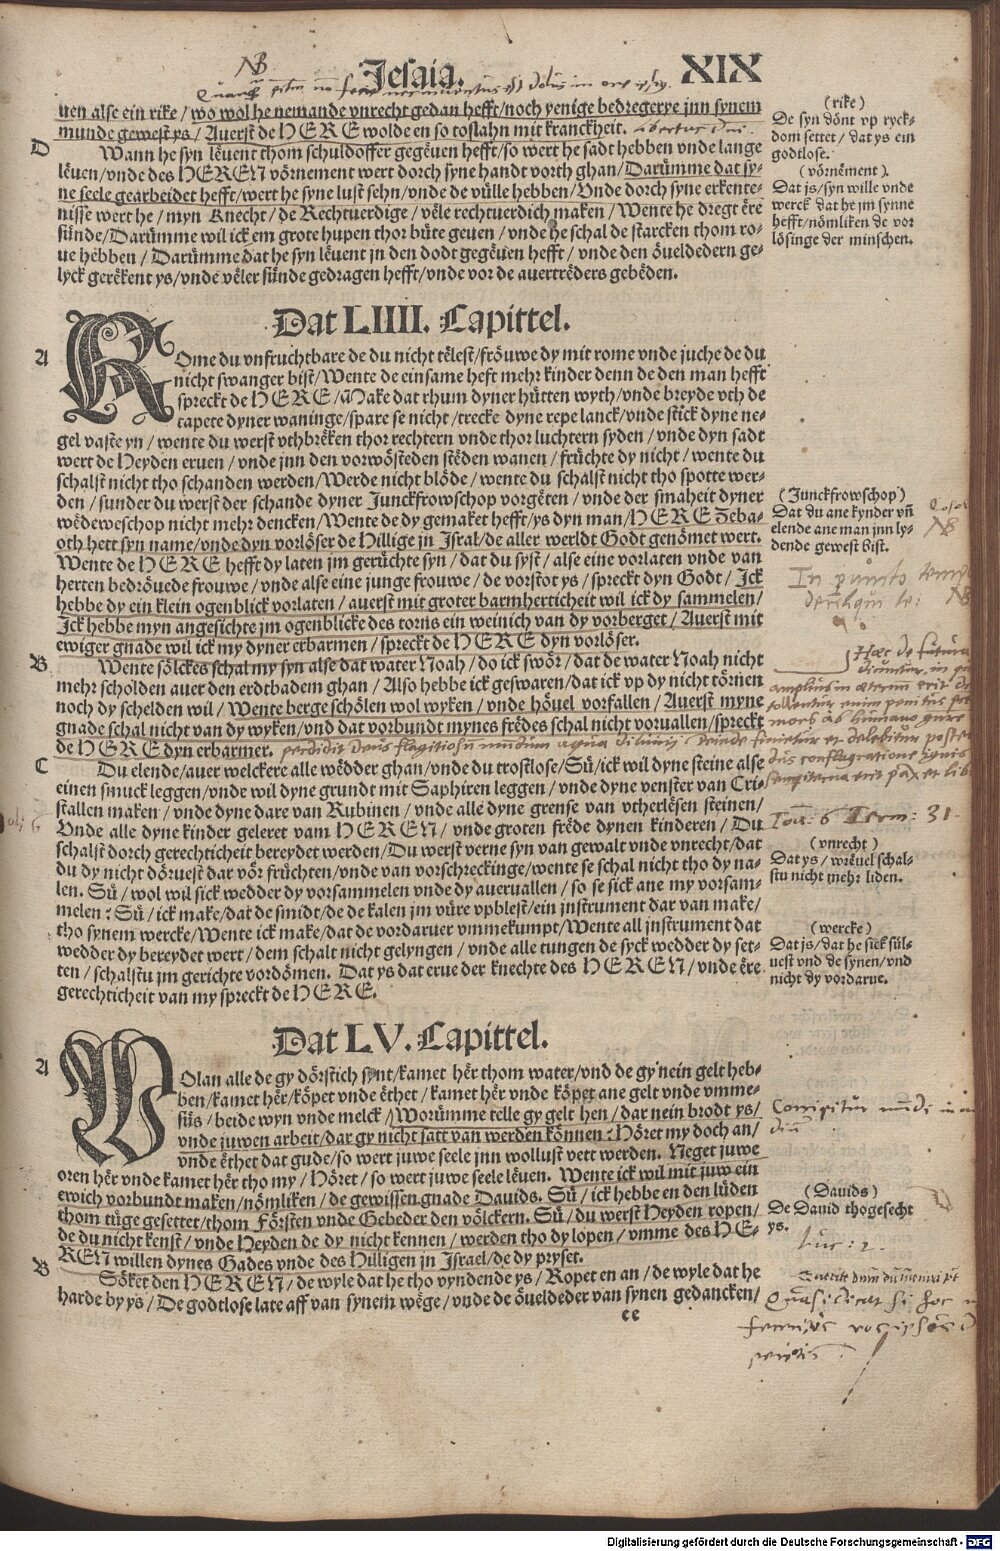 NB
Jesaia. XIX
uen alse ein rike / wo wol he nemande vnrecht gedan hefft / noch yenige bedregerye jnn synem
munde gewest ys / Auerst de HERE wolde en so toslahn mit kranckheit.
D
Wann he syn lëuent thom schuldoffer gegëuen hefft / so wert he sadt hebben vnde lange
lëuen / vnde des HEREN vörnement wert dorch syne handt vorth ghan / Darümme dat sy-
ne seele gearbeidet hefft / wert he syne lust sehn / vnde de vülle hebben / Vnde dorch syne erkente-
nisse wert he / myn Knecht / de Rechtuerdige / vële rechtuerdich maken / Wente he dregt ëre
sünde / Darümme wil ick em grote hupen thor büte geuen / vnde he schal de starcken thom ro-
ue hëbben / Darümme dat he syn lëuent jn den dodt gegëuen hefft / vnde den öueldedern ge-
lyck gerëkent ys / vnde vëler sünde gedragen hefft / vnde vor de auertrëders gebëden.
(rike)
De syn dönt vp ryck-
dom settet / dat ys ein
godtlose.
(vörnëment).
Dat js / syn wille vnde
werck dat he jm synne
hefft / nömliken de vor
lösinge der minschen.
Dat LIIII. Capittel.
A
KOme du vnfruchtbare de du nicht tëlest / fröuwe dy mit rome vnde juche de du
nicht swanger bist / Wente de einsame heft mehr kinder denn de den man hefft
spreckt de HERE / Make dat rhum dyner hütten wyth / vnde breyde vth de
tapete dyner waninge / spare se nicht / trecke dyne repe lanck / vnde stick dyne ne-
gel vaste yn / wente du werst vthbrëken thor rechtern vnde thor luchtern syden / vnde dyn sadt
wert de Heyden eruen / vnde jnn den vorwösteden stëden wanen / früchte dy nicht / wente du
schalst nicht tho schanden werden / Werde nicht blöde / wente du schalst nicht tho spotte wer-
den / sunder du werst der schande dyner Junckfrowschop vorgëten / vnde der smaheit dyner
wëdeweschop nicht mehr dencken / Wente de dy gemaket hefft / ys dyn man / HERE Zeba-
oth hett syn name / vnde dyn vorlöser de Hillige jn Isral / de aller werldt Godt genömet wert.
Wente de HERE hefft dy laten jm gerüchte syn / dat du syst / alse eine vorlaten vnde van
herten bedröuede frouwe / vnde alse eine junge frouwe / de vorstot ys / spreckt dyn Godt / Ick
hebbe dy ein klein ogenblick vorlaten / auerst mit groter barmherticheit wil ick dy sammelen /
Ick hebbe myn angesichte jm ogenblicke des torns ein weinich van dy vorberget / Auerst mit
ewiger gnade wil ick my dyner erbarmen / spreckt de HERE dyn vorlöser.
(Junckfrowschop)
Dat du ane kynder vñ
elende ane man jnn ly-
dende gewest bist.
NB
In puncto
B
Wente sölckes schal my syn alse dat water Noah / do ick swör / dat de water Noah nicht
mehr scholden auer den erdtbadem ghan / Also hebbe ick geswaren / dat ick vp dy nicht törnen
noch dy schelden wil / Wente berge schölen wol wyken / vnde höuel vorfallen / Auerst myne
gnade schal nicht van dy wyken / vnd dat vorbundt mynes frëdes schal nicht voruallen / spreckt
de HERE dyn erbarmer.
C
Du elende / auer welckere alle wëdder ghan / vnde du trostlose / Sü / ick wil dyne steine alse
einen smuck leggen / vnde wil dyne grundt mit Saphiren leggen / vnde dyne venster van Cri-
stallen maken / vnde dyne dare van Rubinen / vnde alle dyne grense van vtherlësen steinen /
Vnde alle dyne kinder geleret vam HEREN / vnde groten frëde dynen kinderen / Du
schalst dorch gerechticheit bereydet werden / Du werst verne syn van gewalt vnde vnrecht / dat
du dy nicht döruest dar vör früchten / vnde van vorschreckinge / wente se schal nicht tho dy na-
len. Sü / wol wil sick wedder dy vorsammelen vnde dy aueruallen / so se sick ane my vorsam-
melen : Sü / ick make / dat de smidt / de de kalen jm vüre vpblest / ein jnstrument dar van make /
tho synem wercke / Wente ick make / dat de vordaruer vmmekumpt / Wente all jnstrument dat
wedder dy bereydet wert / dem schalt nicht gelyngen / vnde alle tungen de syck wedder dy set-
ten / schalstu jm gerichte vordömen. Dat ys dat erue der knechte des HEREN / vnde ëre
gerechticheit van my spreckt de HERE.
31.
(vnrecht)
Dat ys / wrëuel schal-
stu nicht mehr liden.
(wercke)
Dat js / dat he sick sül-
uest vnd de synen / vnd
nicht dy vordarue.
Dat LV. Capittel.
A
WOlan alle de gy dörstich synt / kamet hër thom water / vnd de gy nein gelt heb-
ben / kamet hër / köpet vnde ëthet / kamet hër vnde köpet ane gelt vnde vmme-
süs / beide wyn vnde melck / Worümme telle gy gelt hen / dar nein brodt ys /
vnde juwen arbeit / dar gy nicht satt van werden können : Höret my doch an /
vnde ëthet dat gude / so wert juwe seele jnn wollust vett werden. Neget juwe
oren hër vnde kamet hër tho my / Höret / so wert juwe seele lëuen. Wente ick wil mit juw ein
ewich vorbundt maken / nömliken / de gewissen gnade Dauids. Sü / ick hebbe en den lüden
thom tüge gesettet / thom Försten vnde Gebeder den völckern. Sü / du werst Heyden ropen /
de du nicht kenst / vnde Heyden de dy nicht kennen / werden tho dy lopen / vmme des HE-
REN willen dynes Gades vnde des Hilligen jn Israel / de dy pryset.
(Dauids)
De Dauid thogesecht
ys.
B
Söket den HEREN / de wyle dat he tho vyndende ys / Ropet en an / de wyle dat he
harde by ys / De godtlose late aff van synem wëge / vnde de öueldeder van synen gedancken /
ee
Digitalisierung gefördert durch die Deutsche Forschungsgemeinschaft - DFG